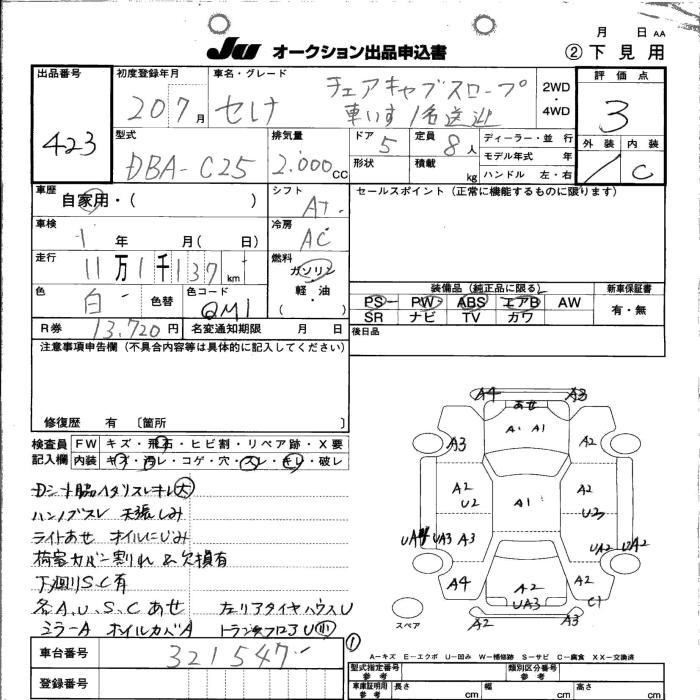 月 日 AA
JU オークション出品申込書 ② 下見用
出品番号 初度登録年月 車名・グレード チェアキャブスロープ 2WD・4WD 評価点
423 20 7月 セレナ 車いす1名送迎 3
型式 排気量 ドア 定員 ディーラー・並行 外装 内装
DBA-C25 2.000cc 5 8人 モデル年式 年 C
形状 積載 kg ハンドル 左・右
車歴 シフト セールスポイント(正常に機能するものに限ります)
自家用・( ) AT
車検 年 月( 日) 冷房 AC
走行 11万1千137km 燃料 ガソリン・軽油 ( )
装備品(純正品に限る) 新車保証書
色 白 色替 色コード QM1 PS PW ABS エアB AW 有・無
SR ナビ TV カワ
R券 13,720円 名変通知期限 月 日 後日品
注意事項申告欄(不具合内容等は具体的に記入してください)
修復歴 有 〔箇所 〕
検査員記入欄 FW キズ・飛石・ヒビ割・リペア跡・X要
内装 キズ・汚レ・コゲ・穴・スレ・キレ・破レ
A4 A3
あせ
A1 A1
A3 A2
A2 A2
U2 A1 U3
UA3 A3 UA2 UA2
A4 A2 A2
UA3 C1
A2 A3
スペア
Dシート脇ヘタリスレキレ大
ハンドルスレ 天張しみ
ライトあせ オイルにじみ
荷室カバー割れ & 欠損有
下廻りS.C有
各A.U.S.Cあせ 左リアタイヤハウスU
ミラーA オイルカバA トランクフロアU小
①
A-キズ E-エクボ U-凹み W-補修跡 S-サビ C-腐食 XX-交換済
車台番号 321547
登録番号
型式指定番号 参考 類別区分番号 参考
車庫証明用 参考 長さ cm 幅 cm 高さ cm